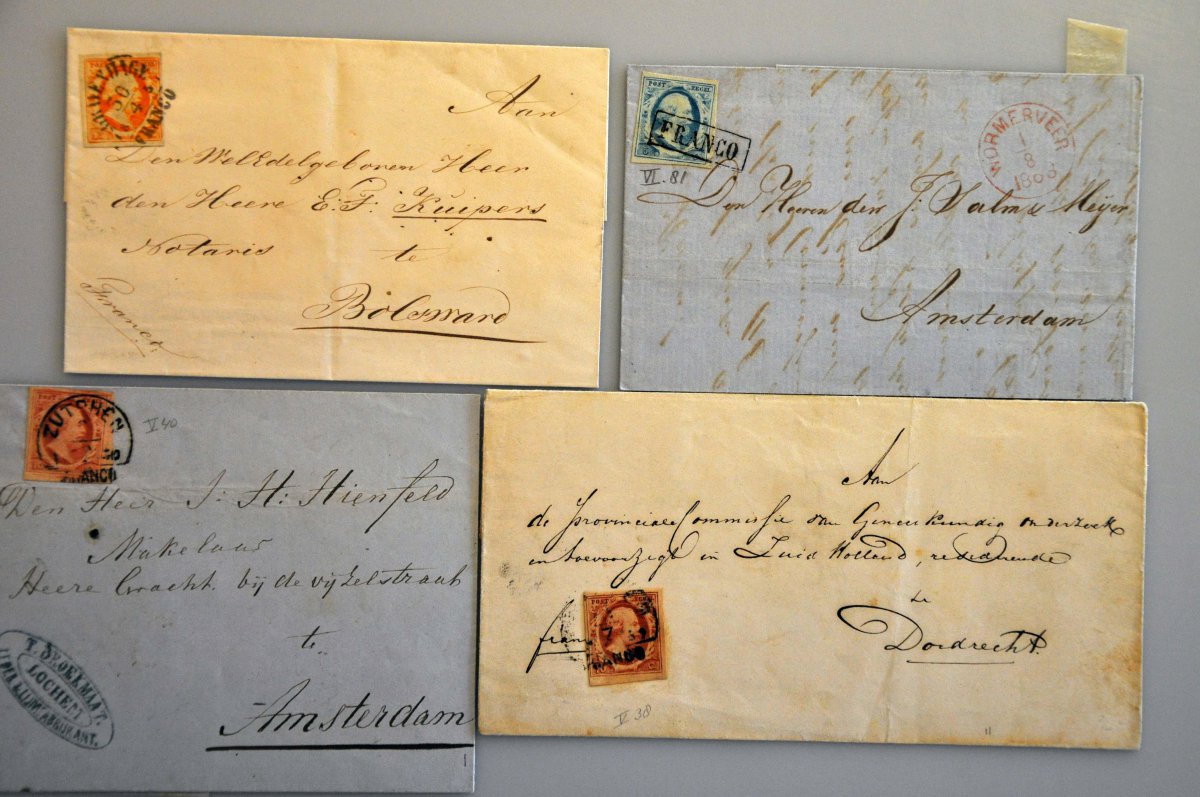 FRANCO
30
4
Aan
Den WelEdelgeboren Heer
den Heere E. F. Kuipers
Notaris te
Bolsward
Franco
POST ZEGEL
FRANCO
VI. 81
WORMERVEER
1
8
1863
Heeren
Amsterdam
POST
ZUTPHEN
FRANCO
V 40
Den Heer J: H: Hienfeld
Makelaar
Heere Gracht bij de vijzelstraat
te
Amsterdam
LOCHEM
Aan
de Provinciale Commissie van Geneeskundig onderzoek
en toevoorzigt in Zuid Holland, residerende
te
Dordrecht.
franco
POST ZEGEL
7
FRANCO
V 38